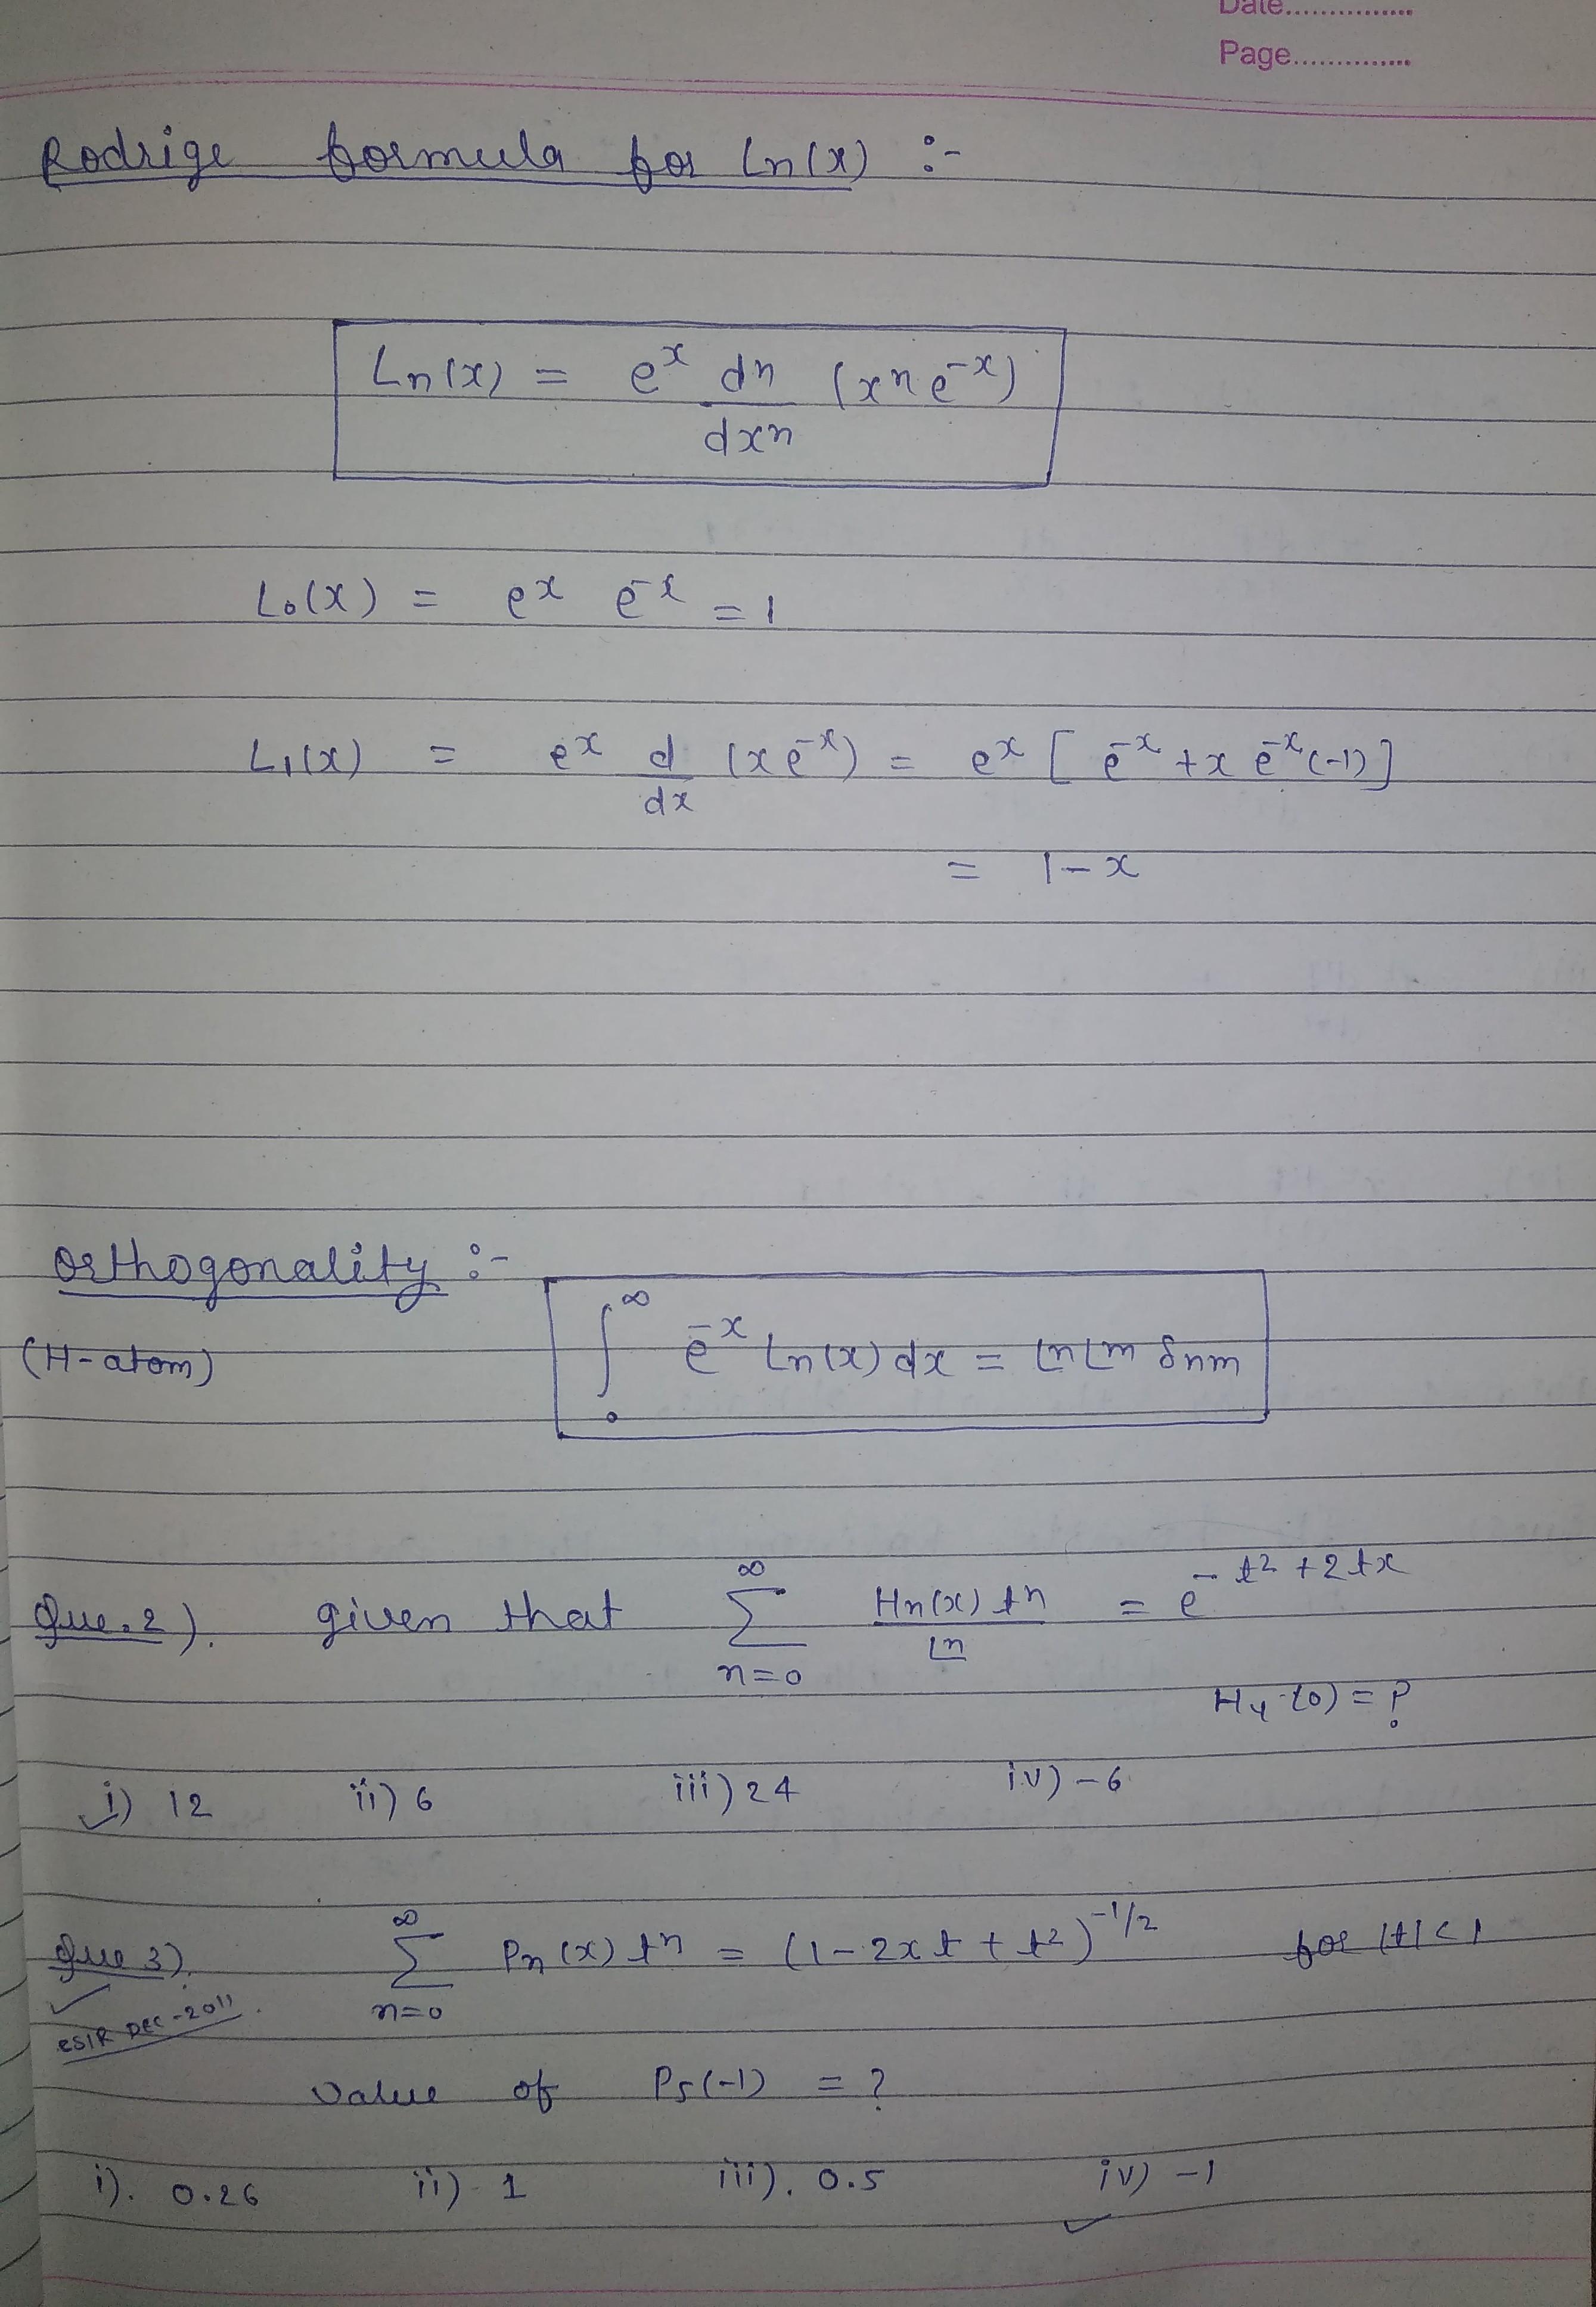 Date...............
Page..............
Rodrige formula for Ln(x) :-
Ln(x) = e^x d^n/dx^n (x^n e^-x)
L₀(x) = e^x e^-x = 1
L₁(x) = e^x d/dx (x e^-x) = e^x [ e^-x + x e^-x (-1) ]
= 1 - x
Orthogonality :-
(H-atom)
∫₀^∞ e^-x Ln(x) dx = ⌊n ⌊m δnm
Que.2). given that ∑_{n=0}^∞ Hn(x) t^n / ⌊n = e^{-t² + 2tx}
H₄(0) = ?
i) 12 ii) 6 iii) 24 iv) -6
Que 3). ∑_{n=0}^∞ Pn(x) t^n = (1 - 2xt + t²)^{-1/2} for |t| < 1
CSIR DEC-2011.
Value of P₅(-1) = ?
i). 0.26 ii) 1 iii). 0.5 iv) -1